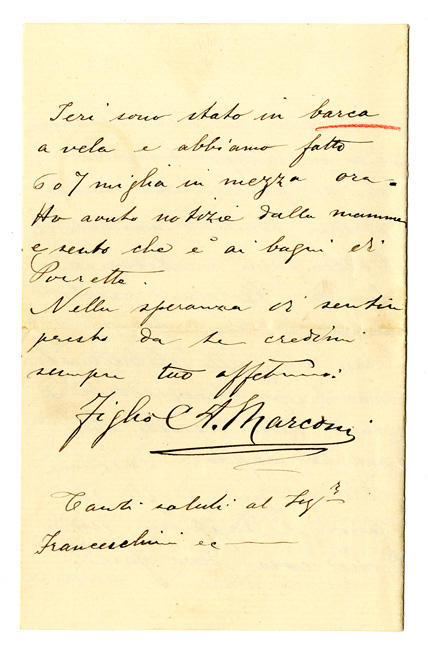 Ieri sono stato in barca
a vela e abbiamo fatto
6 o 7 miglia in mezza ora =
Ho avuto notizie dalla mamma
e sento che e' ai bagni di
Porretta.
Nella speranza di sentir
presto da te credimi
sempre tuo affetmo:
Figlio A. Marconi
Tanti saluti al Sigr
Franceschini ec